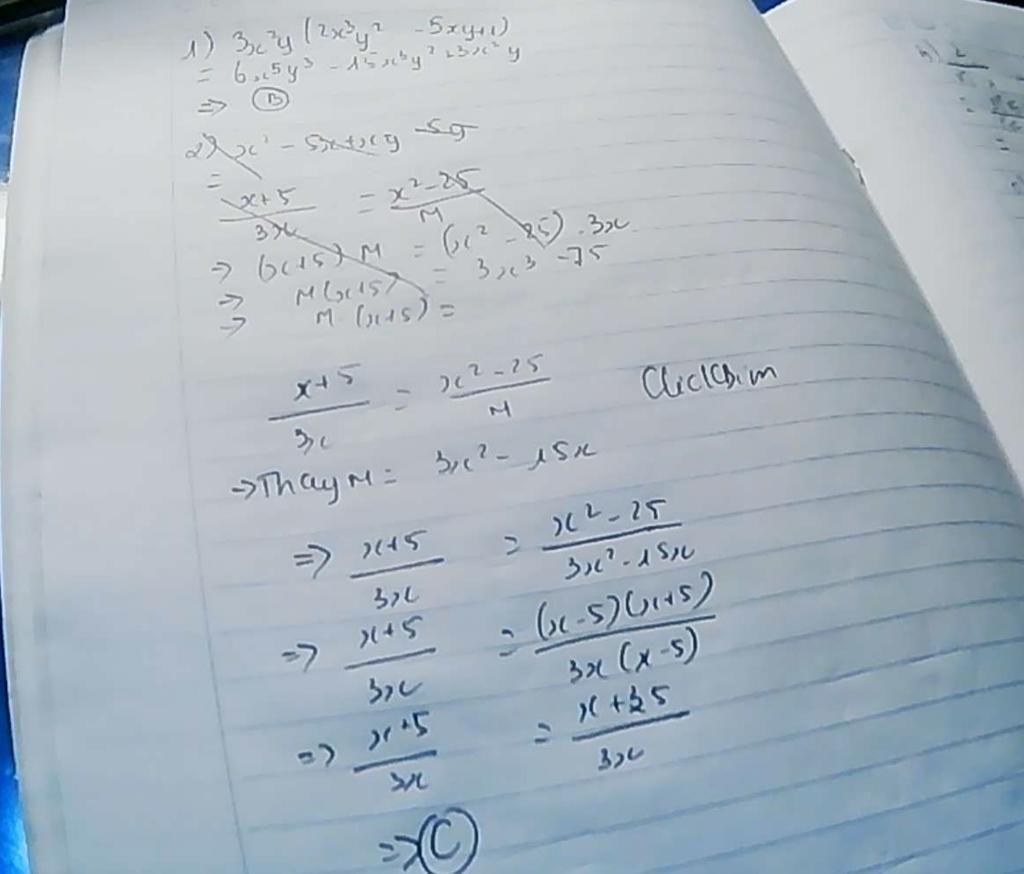 1) 3x²y (2x³y² - 5xy+1)
= 6x⁵y³ - 15x³y² + 3x²y
=> B
2) x² - 5x + xy - 5y
=
x+5/3x = x²-25/M
=> (x+5) M = (x² - 25) . 3x
=> M(x+5) = 3x³ - 75
=> M. (x+5) =
x+5/3x = x²-25/M
=> Thay M = 3x² - 15x
=> x+5/3x = x²-25/3x²-15x
=> x+5/3x = (x-5)(x+5)/3x(x-5)
=> x+5/3x = x+5/3x
=> C